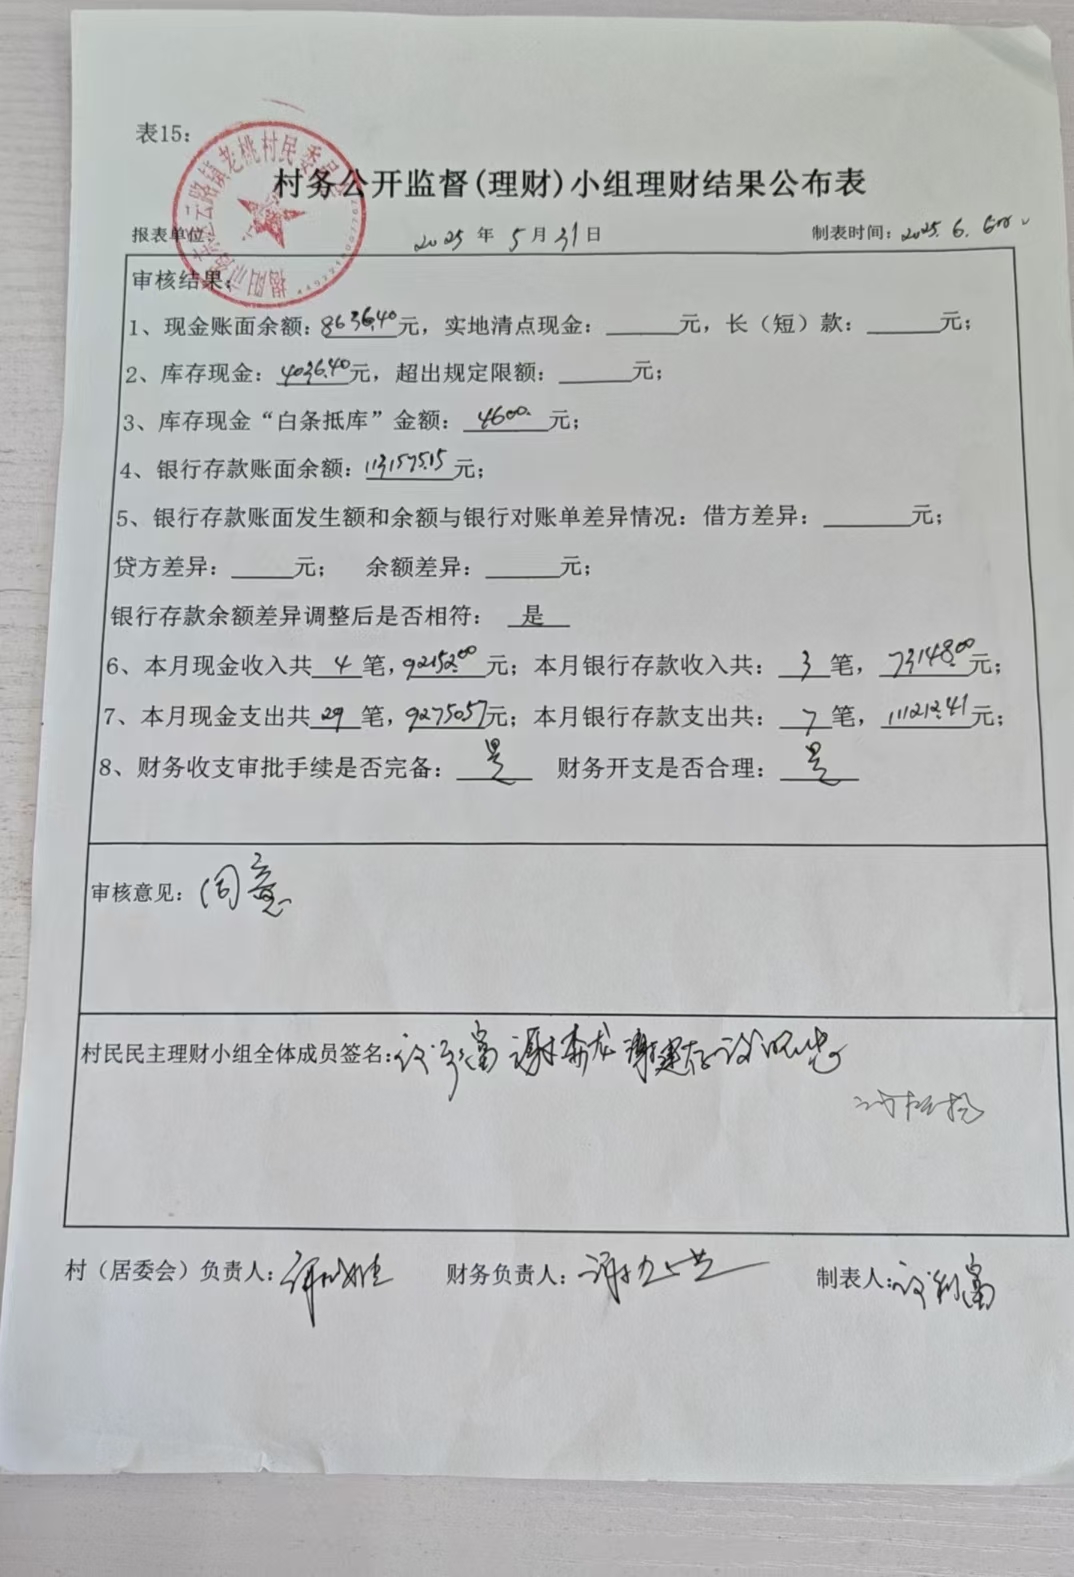 表15:
村务公开监督(理财)小组理财结果公布表
报表单位: 2025 年 5 月 31 日 制表时间: 2025. 6. 6
审核结果:
1、现金账面余额: 8636.40 元，实地清点现金: ______元，长（短）款: ______元;
2、库存现金: 4036.40 元，超出规定限额: ______元;
3、库存现金“白条抵库”金额: 4600. 元;
4、银行存款账面余额: 113157515 元;
5、银行存款账面发生额和余额与银行对账单差异情况: 借方差异: ______元;
贷方差异: _____元; 余额差异: ______元;
银行存款余额差异调整后是否相符: 是
6、本月现金收入共 4 笔, 92152.00 元; 本月银行存款收入共: 3 笔, 73148.00 元;
7、本月现金支出共 29 笔, 92750.57 元; 本月银行存款支出共: 7 笔, 111212.41 元;
8、财务收支审批手续是否完备: 是 财务开支是否合理: 是
审核意见: 同意
村民民主理财小组全体成员签名:
村（居委会）负责人: 财务负责人: 制表人:
云路镇老桃村民委员会